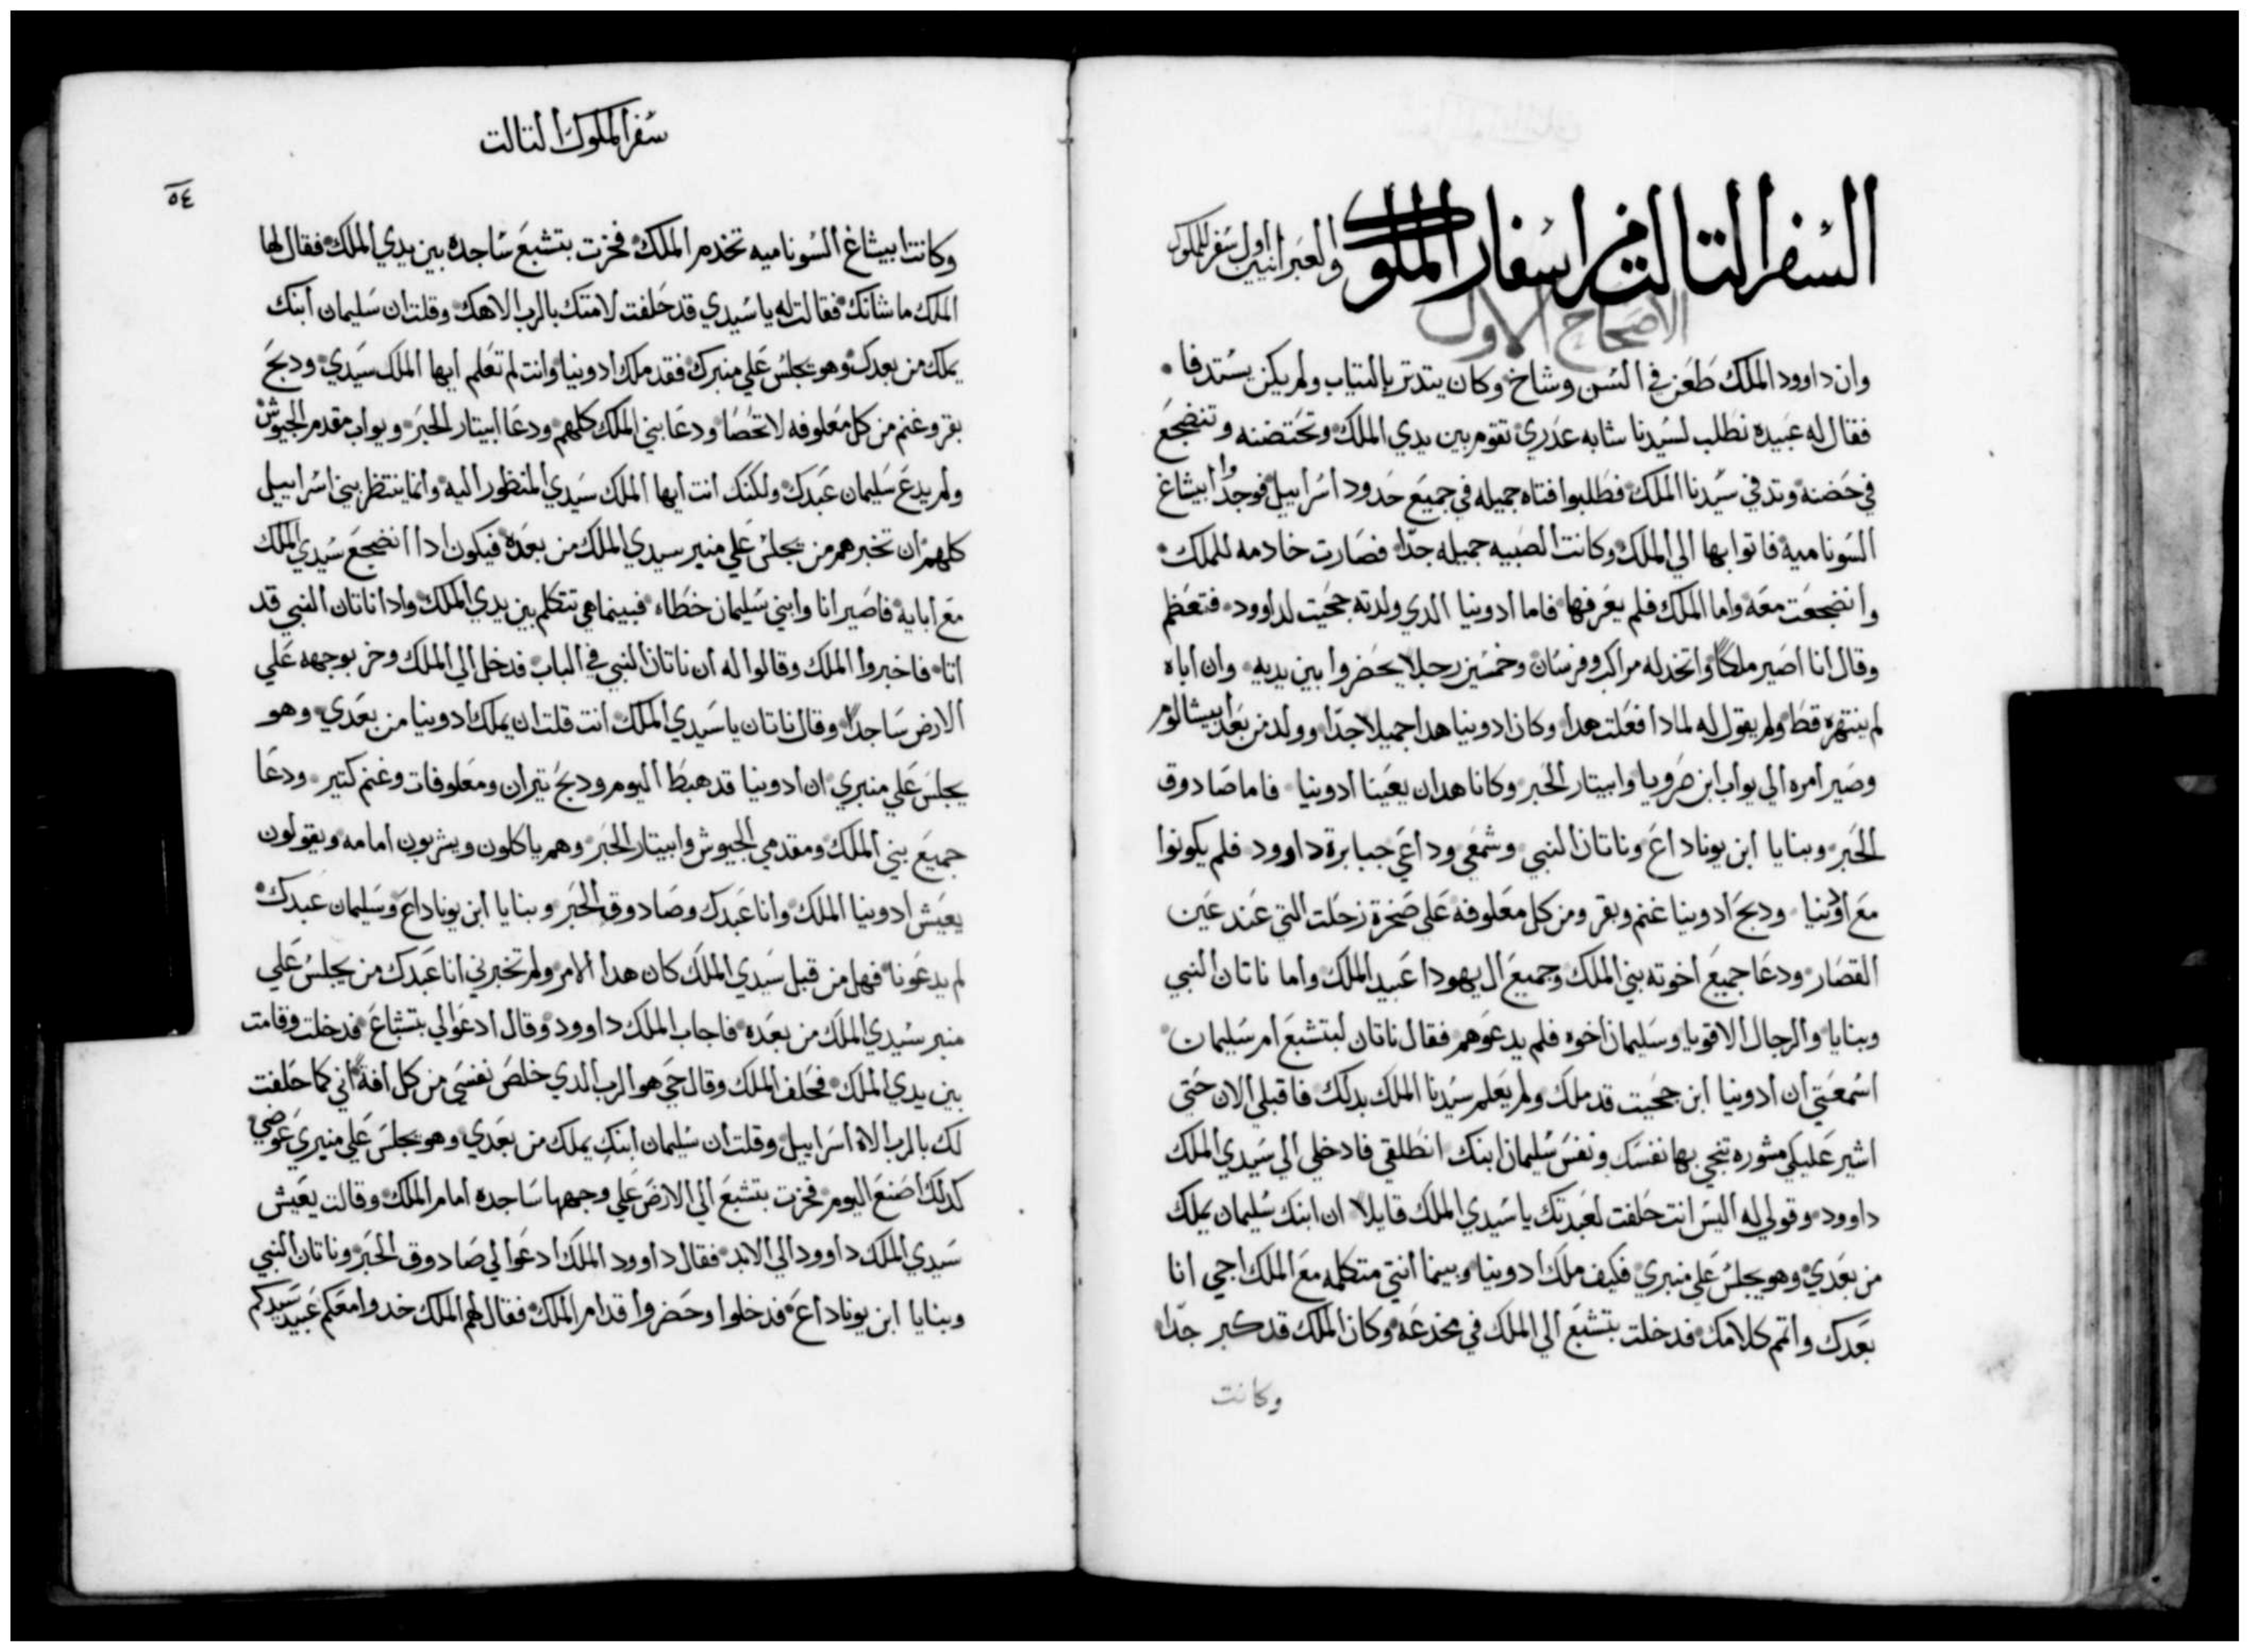 السفر التالت من اسفار الملوك والعبرانيين اول سفر الملوك
الاصحاح الاول
وان داوود الملك طعن في السن وشاخ وكان يتدتر بالتياب ولم يكن يستدفا
فقال له عبيده نطلب لسيدنا شابه عدري تقوم بين يدي الملك وتحتضنه وتنضجع
في حضنه وتدفي سيدنا الملك فطلبوا فتاه جميله في جميع حدود اسراييل فوجدوا ابيشاغ
السوناميه فاتوا بها الي الملك وكانت الصبيه جميله جدا فصارت خادمه للملك
وانضجعت معه واما الملك فلم يعرفها فاما ادونيا الدي ولدته ججيت لداوود فتعظم
وقال انا اصير ملكا واتخد له مراكب وفرسان وخمسين رجلا يحضروا بين يديه وان اباه
لم ينتهره قط ولم يقول له لمادا فعلت هدا وكان ادونيا هدا جميلا جدا وولد من بعد ابيشالوم
وصير امره الي يواب ابن صرويا وابيتار الحبر وكانا هدان يعينا ادونيا فاما صادوق
الحبر وبنايا ابن يوناداع وناتان النبي وشمعي وداعي جبابرة داوود فلم يكونوا
مع ادونيا ودبح ادونيا غنم وبقر ومن كل معلوفه علي صخرة زحلت التي عند عين
القصار ودعا جميع اخوته بني الملك وجميع ال يهودا عبيد الملك واما ناتان النبي
وبنايا والرجال الاقويا وسليمان اخوه فلم يدعوهم فقال ناتان لبتشبع ام سليمان
اسمعتي ان ادونيا ابن ججيت قد ملك ولم يعلم سيدنا الملك بدلك فاقبلي الان حتي
اشير عليكي مشوره تنجي بها نفسك ونفس سليمان ابنك انطلقي فادخلي الي سيدي الملك
داوود وقولي له اليس انت حلفت لعبدتك يا سيدي الملك قايلا ان ابنك سليمان يملك
من بعدي وهو يجلس علي منبري فكيف ملك ادونيا وبينما انتي متكلمه مع الملك اجي انا
بعدك واتم كلامك فدخلت بتشبع الي الملك في مخدعه وكان الملك قد كبر جدا
وكانت
سفر الملوك التالت
٥٤
وكانت ابيشاغ السوناميه تخدم الملك فخرت بتشبع ساجده بين يدي الملك فقال لها
الملك ما شانك فقالت له يا سيدي قد حلفت لامتك بالرب الاهك وقلت ان سليمان ابنك
يملك من بعدك وهو يجلس علي منبرك فقد ملك ادونيا وانت لم تعلم ايها الملك سيدي ودبح
بقر وغنم من كل معلوفه لا تحصا ودعا بني الملك كلهم ودعا ابيتار الحبر ويواب مقدم الجيوش
ولم يدع سليمان عبدك ولكنك انت ايها الملك سيدي المنظور اليه وانما ينتظر بني اسراييل
كلهم ان تخبرهم من يجلس علي منبر سيدي الملك من بعده فيكون ادا انضجع سيدي الملك
مع ابايه فاصير انا وابني سليمان خطاه فبينما هي تتكلم بين يدي الملك وادا ناتان النبي قد
اتا فاخبروا الملك وقالوا له ان ناتان النبي في الباب فدخل الي الملك وخر بوجهه علي
الارض ساجدا وقال ناتان يا سيدي الملك انت قلت ان يملك ادونيا من بعدي وهو
يجلس علي منبري ان ادونيا قد هبط اليوم ودبح تيران ومعلوفات وغنم كتير ودعا
جميع بني الملك ومقدمي الجيوش وابيتار الحبر وهم ياكلون ويشربون امامه ويقولون
يعيش ادونيا الملك وانا عبدك وصادوق الحبر وبنايا ابن يوناداع وسليمان عبدك
لم يدعونا فهل من قبل سيدي الملك كان هدا الامر ولم تخبرني انا عبدك من يجلس علي
منبر سيدي الملك من بعده فاجاب الملك داوود وقال ادعوا لي بتشباع فدخلت وقامت
بين يدي الملك فحلف الملك وقال حي هو الرب الدي خلص نفسي من كل افة اني كما حلفت
لك بالرب الاه اسراييل وقلت ان سليمان ابنك يملك من بعدي وهو يجلس علي منبري عوضي
كدلك اصنع اليوم فخرت بتشبع الي الارض علي وجهها ساجده امام الملك وقالت يعيش
سيدي الملك داوود الي الابد فقال داوود الملك ادعوا لي صادوق الحبر وناتان النبي
وبنايا ابن يوناداع فدخلوا وحضروا قدام الملك فقال لهم الملك خدوا معكم عبيد سيدكم